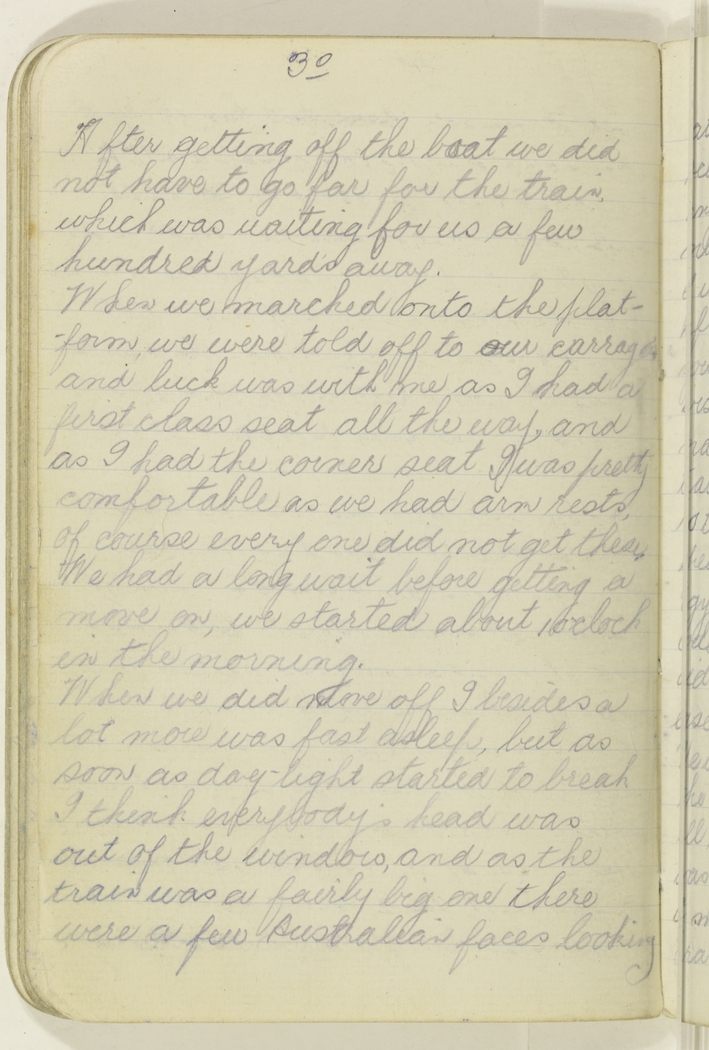 30
After getting off the boat we did
not have to go far for the train,
which was waiting for us a few
hundred yards away.
When we marched onto the plat-
-form, we were told off to our carrages
and luck was with me as I had a
first class seat all the way, and
as I had the corner seat I was pretty
comfortable as we had arm rests,
of course every one did not get these,
We had a long wait before getting a
move on, we started about 1 oclock
in the morning.
When we did move off I besides a
lot more was fast asleep, but as
soon as day-light started to break
I think everybody's head was
out of the window, and as the
train was a fairly big one there
were a few Australian faces looking